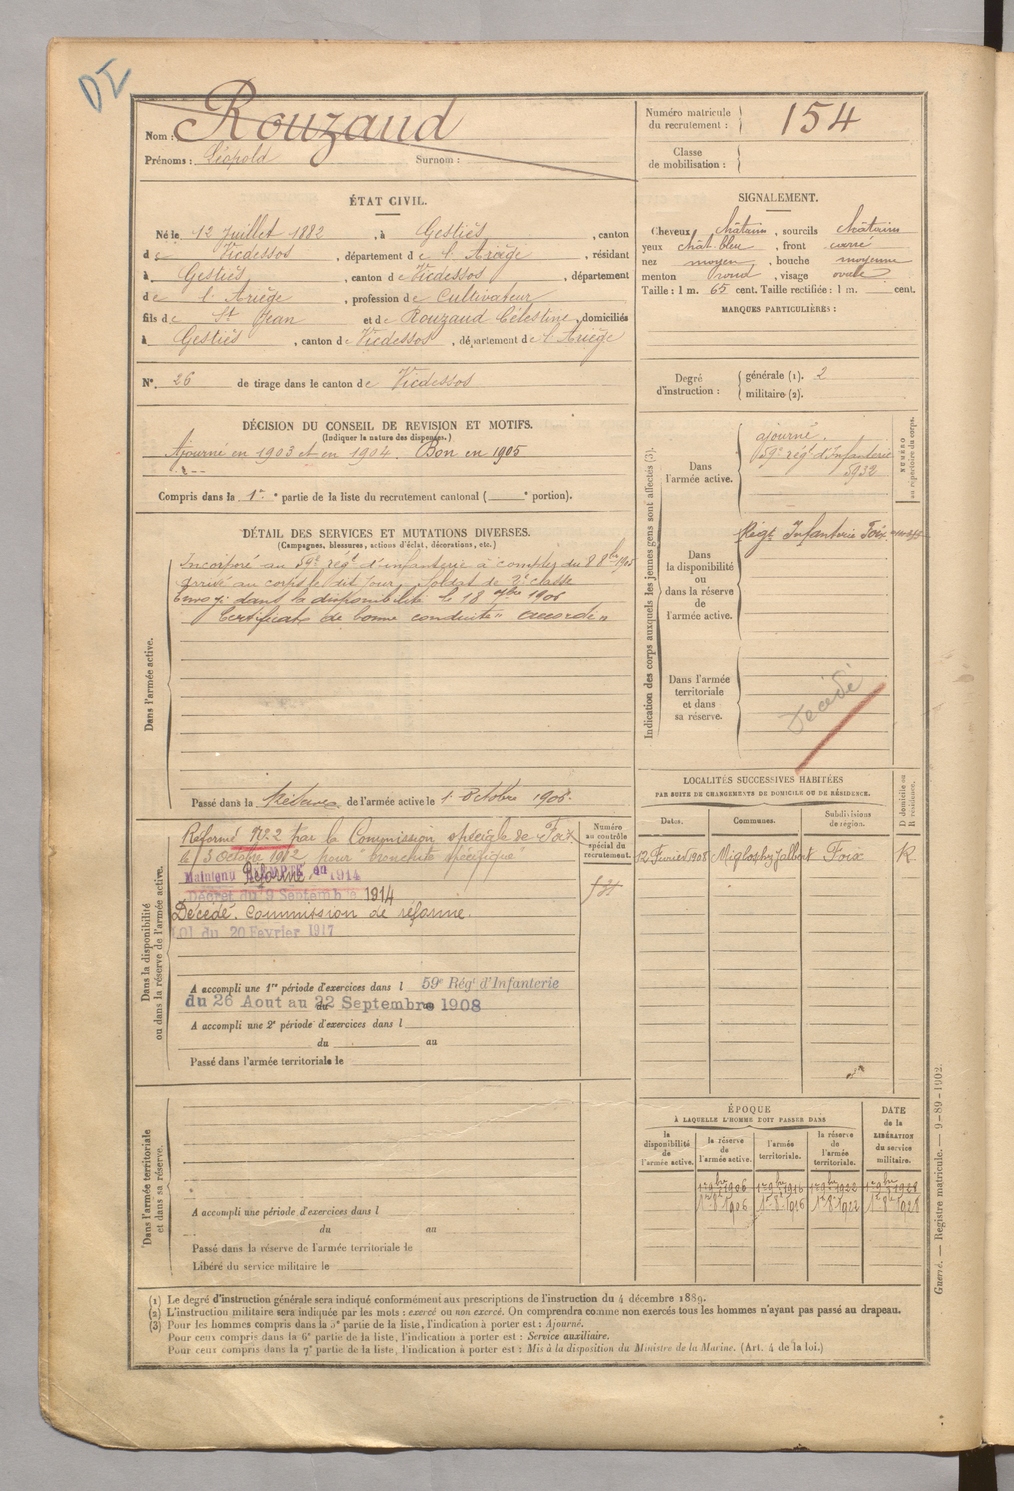 DI
Nom : Rouzaud
Prénoms : Léopold Surnom :
Numéro matricule du recrutement : 154
Classe de mobilisation :
ÉTAT CIVIL.
Né le 12 Juillet 1882, à Gestiès, canton
de Vicdessos, département de l'Ariège, résidant
à Gestiès, canton de Vicdessos, département
de l'Ariège, profession de Cultivateur
fils de St Jean et de Rouzaud Célestine, domiciliés
à Gestiès, canton de Vicdessos, département de l'Ariège
N°. 26 de tirage dans le canton de Vicdessos
SIGNALEMENT.
Cheveux châtains, sourcils châtains
yeux chât. bleu, front carré
nez moyen, bouche moyenne
menton rond, visage ovale
Taille : 1 m. 65 cent. Taille rectifiée : 1 m. cent.
MARQUES PARTICULIÈRES :
Degré d'instruction : générale (1). 2
militaire (2).
DÉCISION DU CONSEIL DE REVISION ET MOTIFS.
(Indiquer la nature des dispenses.)
Ajourné en 1903 et en 1904. Bon en 1905
Compris dans la 1re partie de la liste du recrutement cantonal ( e portion).
DÉTAIL DES SERVICES ET MUTATIONS DIVERSES.
(Campagnes, blessures, actions d'éclat, décorations, etc.)
Dans l'armée active.
Incorporé au 59e rég. d'infanterie à compter du 8 8bre 1905
arrivé au corps le dit jour, soldat de 2e classe
Envoyé dans la disponibilité le 18 7bre 1906
Certificat de bonne conduite "accordé"
Passé dans la Réserve de l'armée active le 1 octobre 1908.
Indication des corps auxquels les jeunes gens sont affectés (3).
NUMÉRO au répertoire du corps.
Dans l'armée active.
ajourné.
59e rég. d'Infanterie
5932
Dans la disponibilité ou dans la réserve de l'armée active.
Régt Infanterie Foix
Dans l'armée territoriale et dans sa réserve.
Décédé
Dans la disponibilité ou dans la réserve de l'armée active.
Numéro au contrôle spécial du recrutement.
Réformé N° 2 par la Commission spéciale de Foix
le 15 Octobre 1912 pour bronchite spécifique
Maintenu Réformé 1914
Décret du 9 Septembre 1914
Décédé. Commission de réforme.
Loi du 20 Février 1917
A accompli une 1re période d'exercices dans l 59e Régt d'Infanterie
du 26 Aout au 22 Septembre 1908
A accompli une 2e période d'exercices dans l
du au
Passé dans l'armée territoriale le
LOCALITÉS SUCCESSIVES HABITÉES
PAR SUITE DE CHANGEMENTS DE DOMICILE OU DE RÉSIDENCE.
Dates. Communes. Subdivisions de région. D domicile ou R résidence.
12 Février 1908 Foix R
Dans l'armée territoriale et dans sa réserve.
A accompli une période d'exercices dans l
du au
Passé dans la réserve de l'armée territoriale le
Libéré du service militaire le
ÉPOQUE
À LAQUELLE L'HOMME DOIT PASSER DANS
la disponibilité de l'armée active. la réserve de l'armée active. l'armée territoriale. la réserve de l'armée territoriale.
DATE de la LIBÉRATION du service militaire.
1er 9bre 1906 1er 9bre 1916 1er 9bre 1922 1er 9bre 1928
1er 8bre 1906 1er 8bre 1916 1er 8bre 1922 1er 8bre 1928
(1) Le degré d'instruction générale sera indiqué conformément aux prescriptions de l'instruction du 4 décembre 1889.
(2) L'instruction militaire sera indiquée par les mots : exercé ou non exercé. On comprendra comme non exercés tous les hommes n'ayant pas passé au drapeau.
(3) Pour les hommes compris dans la 5e partie de la liste, l'indication à porter est : Ajourné.
Pour ceux compris dans la 6e partie de la liste, l'indication à porter est : Service auxiliaire.
Pour ceux compris dans la 7e partie de la liste, l'indication à porter est : Mis à la disposition du Ministre de la Marine. (Art. 4 de la loi.)
Guerre. — Registre matricule. — 9-89-1902.